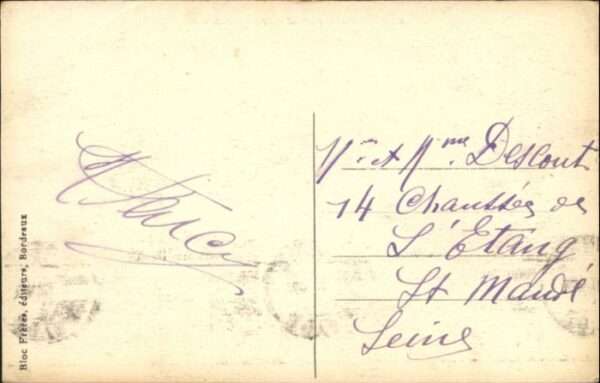 Bloc Frères, éditeurs, Bordeaux
Mr et Mme Descout
14 Chaussée de
L'Étang
St Mandé
Seine